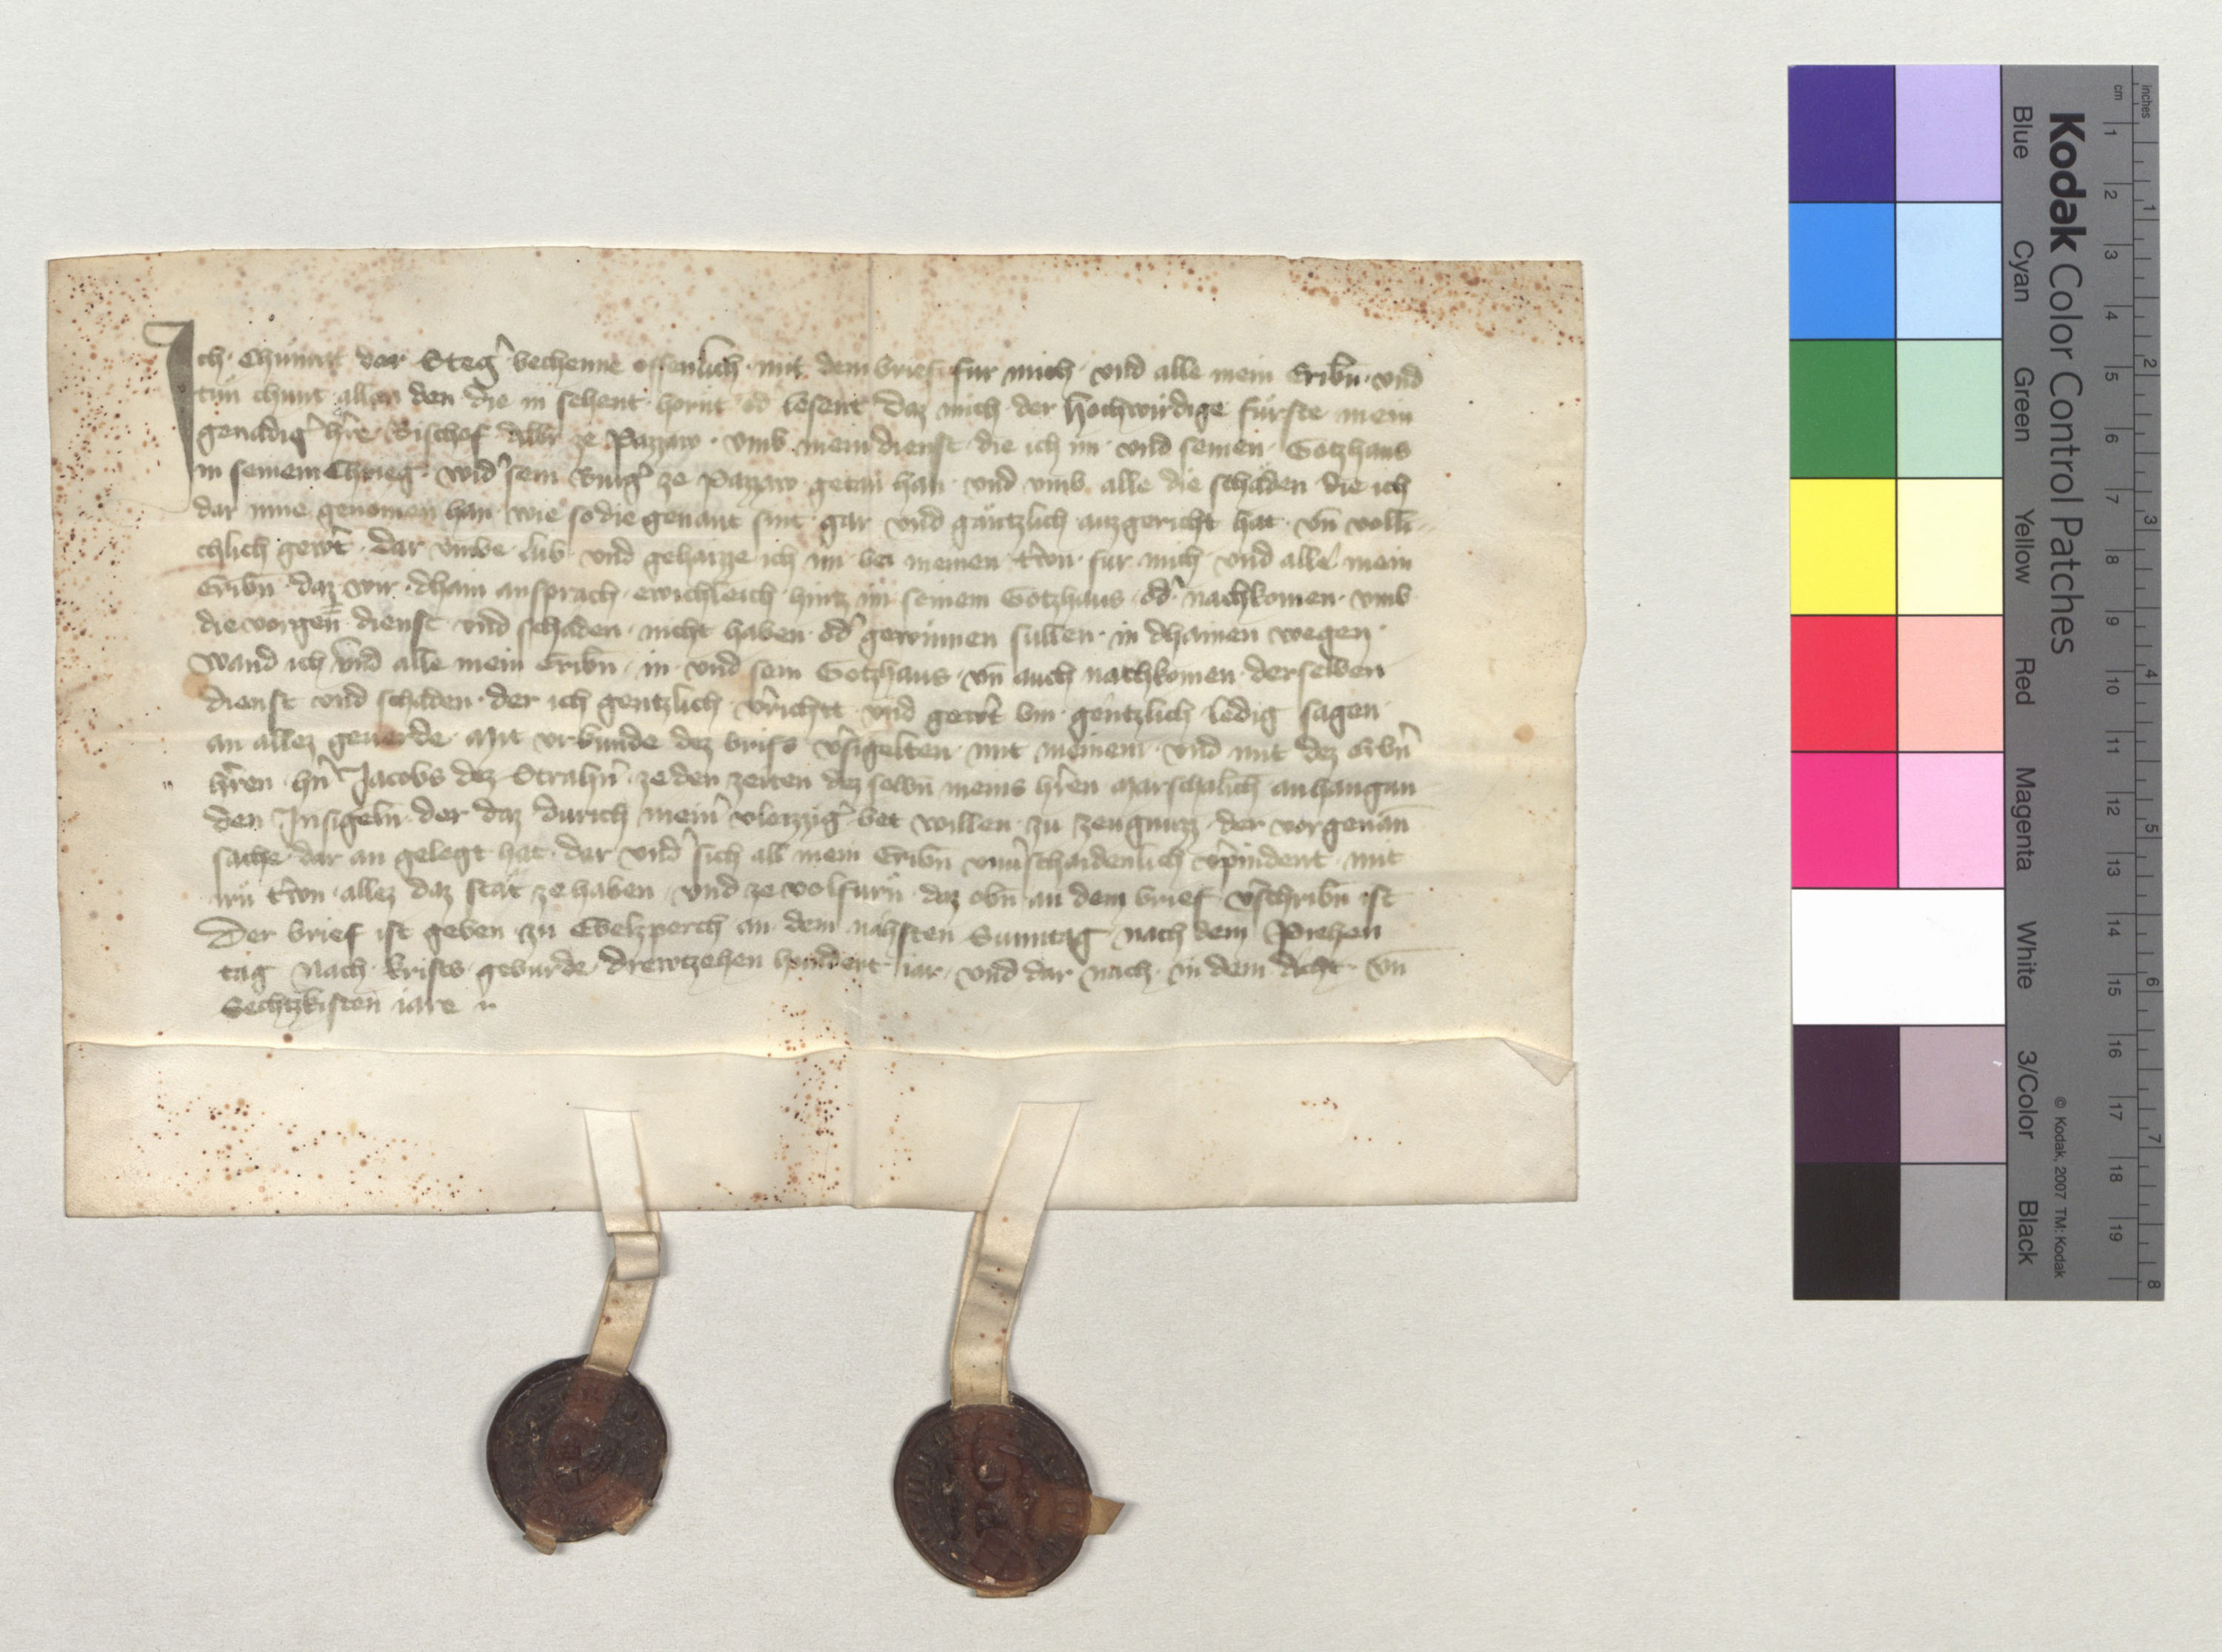 Ich Chunrat der Steg᾽ vechenne offenlich mit dem brief fur mich vnd alle mein Eribn̄ vnd
tůn chunt allen den die in sehent hornt od᾽ lesent daz mich der Hochwirdige fürste mein
genadig᾽ h᾽re Bischof Albr ze Pazzaw vmb mein dienst die ich im vnd seinem Gotzhaus
in seinem Chrieg wid᾽ sein Burg᾽ ze Pazzaw getan han vnd vmb alle die schäden die ich
dar inne genomen han wie so die genant sint gar vnd gäntzlich auzgericht hat vn̄ volli-
chlich gew᾽t dar vmbe lub vnd gehaizze ich im bei meinen t᾽wn fur mich vnd alle mein
Eribn̄ daz wir dhain ansprach ewichleich hintz im seinem Gotzhaus od᾽ nachkomen vmb
die vorgen̄ dienst vnd schaden nicht haben od᾽ gewinnen sullen in dhainen wegen
Wand ich vnd alle mein Eribn̄ in vnd sein Gotzhaus vn̄ auch nachkomen derselben
dienst vnd schaden der ich gentzlich v᾽richtt vnd gew᾽t bin gentzlich ledig sagen
an allez geuerde Mit vrkunde dez brifs v᾽sigelten mit meinem vnd mit dez Erbn᾽
h᾽ren hn᾽ Jacobs dez Strahn᾽ ze den zeiten dez selbn̄ meins h᾽ren Marschalich anhangun
den Insigeln der daz durich mein᾽ vleizzig᾽ bet willen zu zeugnuzz der vorgenan̄
sache dar an gelegt hat dar vnd᾽ sich all mein Eribn̄ vnu᾽schaidenlich v᾽pindent mit
irn t᾽wn allez daz stät ze haben vnd ze volfurn̄ daz obn̄ an dem brief v᾽schribn̄ ist
Der brief ist geben zu Ebelzperch an dem nahsten Sunntag nach dem Prehen
tag Nach Krists gebürde drewtzehen hundert iar vnd dar nach in dem Acht vn̄
Sechtzkisten iare
Kodak Color Control Patches
Blue Cyan Green Yellow Red Magenta White 3/Color Black
© Kodak, 2007 TM: Kodak
cm 1 2 3 4 5 6 7 8 9 10 11 12 13 14 15 16 17 18 19
inches 1 2 3 4 5 6 7 8